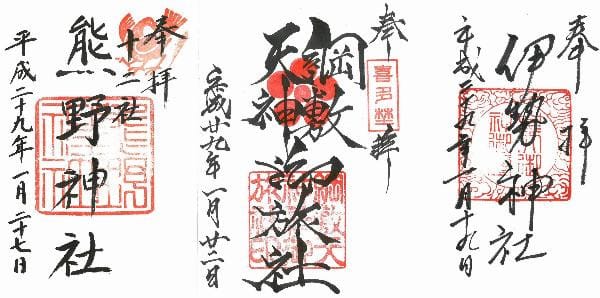 奉拝
十二社
熊野神社
平成二十九年一月二十七日
奉拝
喜多埜
綱敷
天神
御旅社
平成廿九年一月廿二日
奉拝
伊勢神社
平成二十九年一月十九日